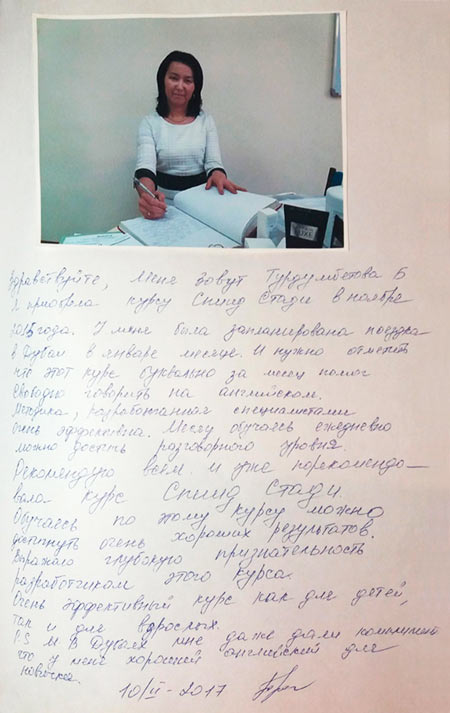 Здравствуйте, меня зовут Турдумбетова Б
Я приобрела курсу Спиид Стади в ноябре
года. У меня была запланирована поездка
в Дубаи в январе месяце. И нужно отметить
что этот курс буквально за месяц помог
свободно говорить на английском.
Методика, разработанная специалистами
очень эффективна. Месяц обучаясь ежедневно
можно достичь разговорного уровня.
Рекомендую всем. И уже порекомендо-
вала курс Спиид Стади.
Обучаясь по этому курсу можно
достигнуть очень хороших результатов.
Выражаю глубокую признательность
разработчикам этого курса.
Очень эффективный курс как для детей,
так и для взрослых.
P.S И В Дубаях мне даже дали комплимент
что у меня хороший английский для
новичка.
10/II-2017